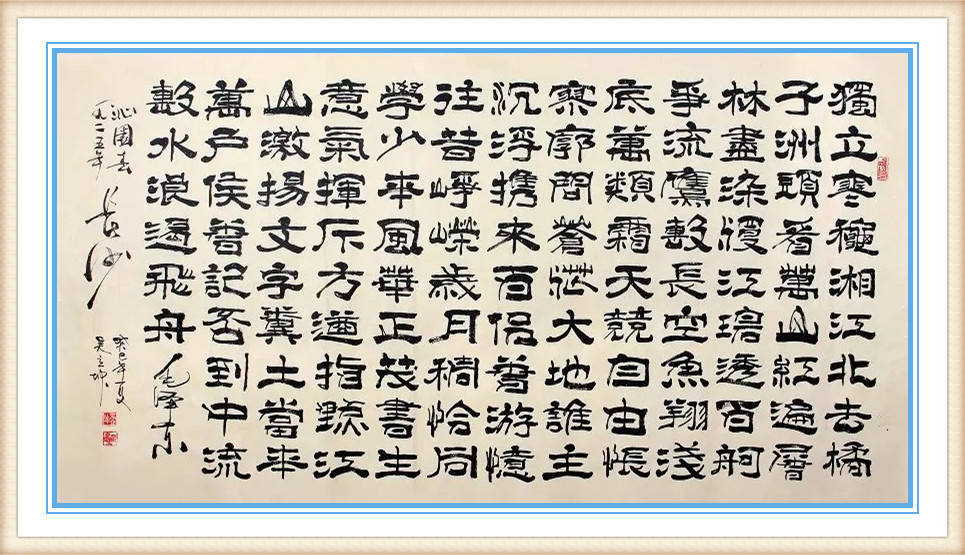 獨立寒穐湘江北去橘
子洲頭看萬山紅遍層
林盡染漫江碧透百舸
爭流鷹擊長空魚翔淺
底萬類霜天競自由悵
寥廓問蒼茫大地誰主
沉浮携來百侶曾游憶
往昔崢嶸歲月稠恰同
學少年風華正茂書生
意氣揮斥方遒指點江
山激揚文字糞土當年
萬戶侯曾記否到中流
擊水浪遏飛舟 毛澤東
沁園春 長沙
一九二五年
癸巳年夏